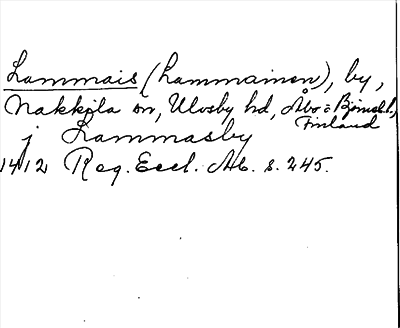 Lammais (Lammainen), by,
Nakkila sn, Ulvsby hd, Åbo o Björneb.,
Finland
j Lammasby
1412 Reg. Eccl. Ab. s. 245.